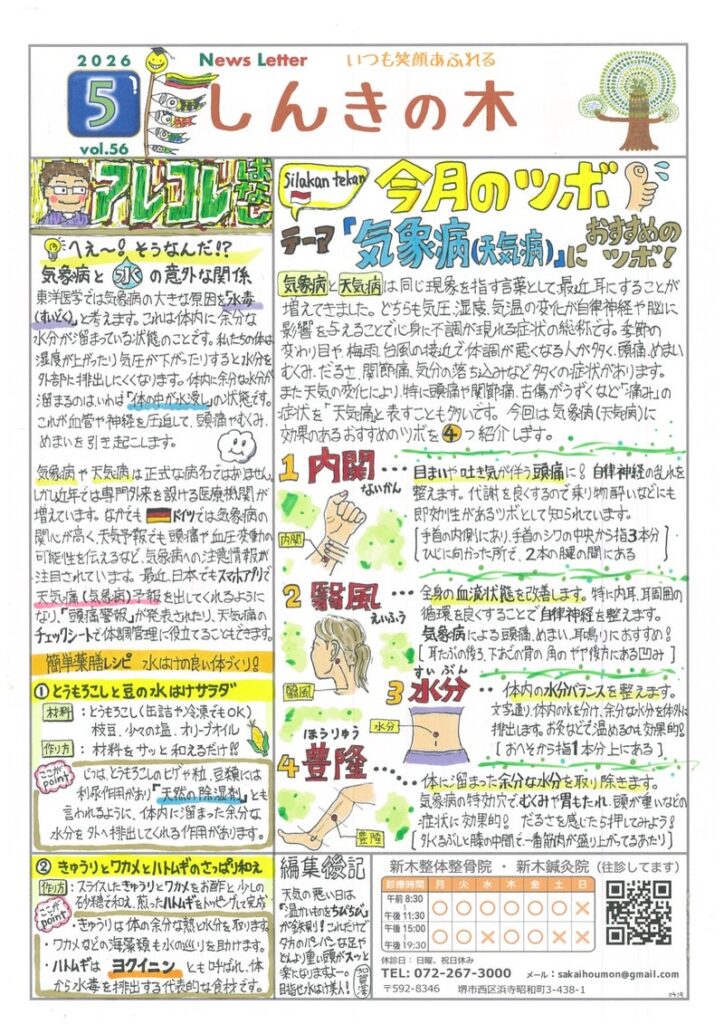 2026
5
vol.56
News Letter
いつも笑顔あふれる
しんきの木
アレコレばなし
へえ〜!そうなんだ!?
気象病と水の意外な関係
東洋医学では気象病の大きな原因を「水毒
(すいどく)」と考えます。これは体内に余分な
水分が溜まっている状態のことです。私たちの体は
湿度が上がったり気圧が下がったりすると水分を
外部に排出しにくくなります。体内に余分な水分が
溜まるのはいわば「体の中が水浸し」の状態です。
これが血管や神経を圧迫して、頭痛やむくみ、
めまいを引き起こします。
気象病や天気病は正式な病名ではありません。
しかし近年では専門外来を設ける医療機関が
増えています。なかでもドイツでは気象病の
関心が高く、天気予報でも頭痛や血圧変動の
可能性を伝えるなど、気象病への注意情報が
注目されています。最近、日本でもスマホアプリで
天気痛(気象病)予報を出してくれるように
なり、「頭痛警報」が発表されたり、天気痛の
チェックシートで体調管理に役立てることもできます。
簡単薬膳レシピ 水はけの良い体づくり!
① とうもろこしと豆の水はけサラダ
材料:とうもろこし(缶詰や冷凍でもOK)
枝豆、少々の塩、オリーブオイル
作り方:材料をサッと和えるだけ!!
ここがpoint
じつは、とうもろこしのヒゲや粒、豆類には
利尿作用があり「天然の除湿剤」とも
言われるように、体内に溜まった余分な
水分を外へ排出してくれる作用があります。
② きゅうりとワカメとハトムギのさっぱり和え
作り方:スライスしたきゅうりとワカメをお酢と少しの
砂糖で和え、煎ったハトムギをトッピングして完成
ここがpoint
・きゅうりは体の余分な熱と水分を取ります。
・ワカメなどの海藻類も水の巡りを助けます。
・ハトムギは ヨクイニン とも呼ばれ、体
から水毒を排出する代表的な食材です。
Silakan tekan
今月のツボ
テーマ「気象病(天気病)」におすすめのツボ!
気象病と天気病は同じ現象を指す言葉として、最近耳にすることが
増えてきました。どちらも気圧、湿度、気温の変化が自律神経や脳に
影響を与えることで心身に不調が現れる症状の総称です。季節の
変わり目や、梅雨、台風の接近で体調が悪くなる人が多く、頭痛、めまい
むくみ、だるさ、関節痛、気分の落ち込みなど多くの症状があります。
また天気の変化により、特に頭痛や関節痛、古傷がうずくなど「痛み」の
症状を「天気痛」と表すことも多いです。今回は気象病(天気病)に
効果のあるおすすめのツボを4つ紹介します。
1 内関
ないかん
内関
目まいや吐き気が伴う頭痛に!自律神経の乱れを
整えます。代謝を良くするので乗り物酔いなどにも
即効性があるツボとして知られています。
[手首の内側にあり、手首のシワの中央から指3本分
ひじに向かった所で、2本の腱の間にある]
2 翳風
えいふう
翳風
全身の血液状態を改善します。特に内耳、耳周囲の
循環を良くすることで自律神経を整えます。
気象病による頭痛、めまい、耳鳴りにおすすめ!
[耳たぶの後ろ、下あごの骨の角のやや後方にある凹み]
3 水分
すいぶん
水分
体内の水分バランスを整えます。
文字通り、体内の水を分け、余分な水分を体外に
排出します。お灸などで温めるのも効果的!
[おへそから指1本分上にある]
ほうりゅう
4 豊隆
豊隆
体に溜まった余分な水分を取り除きます。
気象病の特効穴でむくみや胃もたれ、頭が重いなどの
症状に効果的!だるさを感じたら押してみよう!
[外くるぶしと膝の中間で、一番筋肉が盛り上がってるあたり]
編集後記
天気の悪い日は、
「温かいものをちびちび」
が鉄則!これだけで
夕方のパンパンな足や
どんより重い頭がスッと
楽になりますよー。
目指せ水はけ美人!
新木整体整骨院 ・ 新木鍼灸院 (往診してます)
診療時間 月 火 水 木 金 土 日
午前 8:30 〜 午後 11:30 ○ ○ ○ ○ ○ ○ ×
午後 15:00 〜 午後 19:30 ○ ○ × ○ ○ × ×
休診日:日曜、祝日休み
TEL: 072-267-3000 メール:sakaihoumon@gmail.com
〒592-8346 堺市西区浜寺昭和町3-438-1